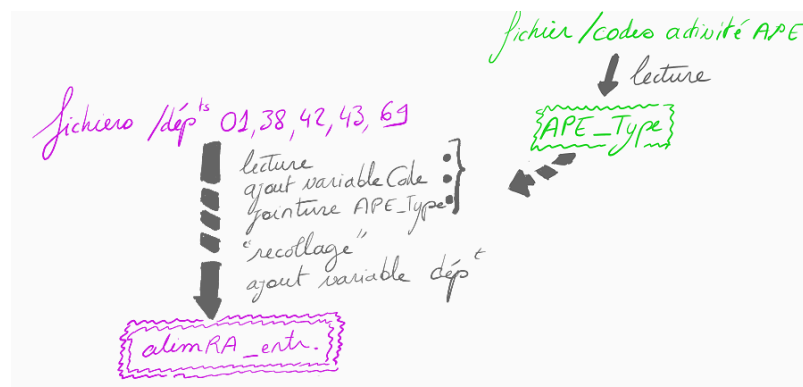 fichier/codes activité APE
lecture
APE_Type
fichiers /dépts 01, 38, 42, 43, 69
lecture
ajout variable Code
jointure APE_Type
"recollage"
ajout variable dépt
alimRA_entr.